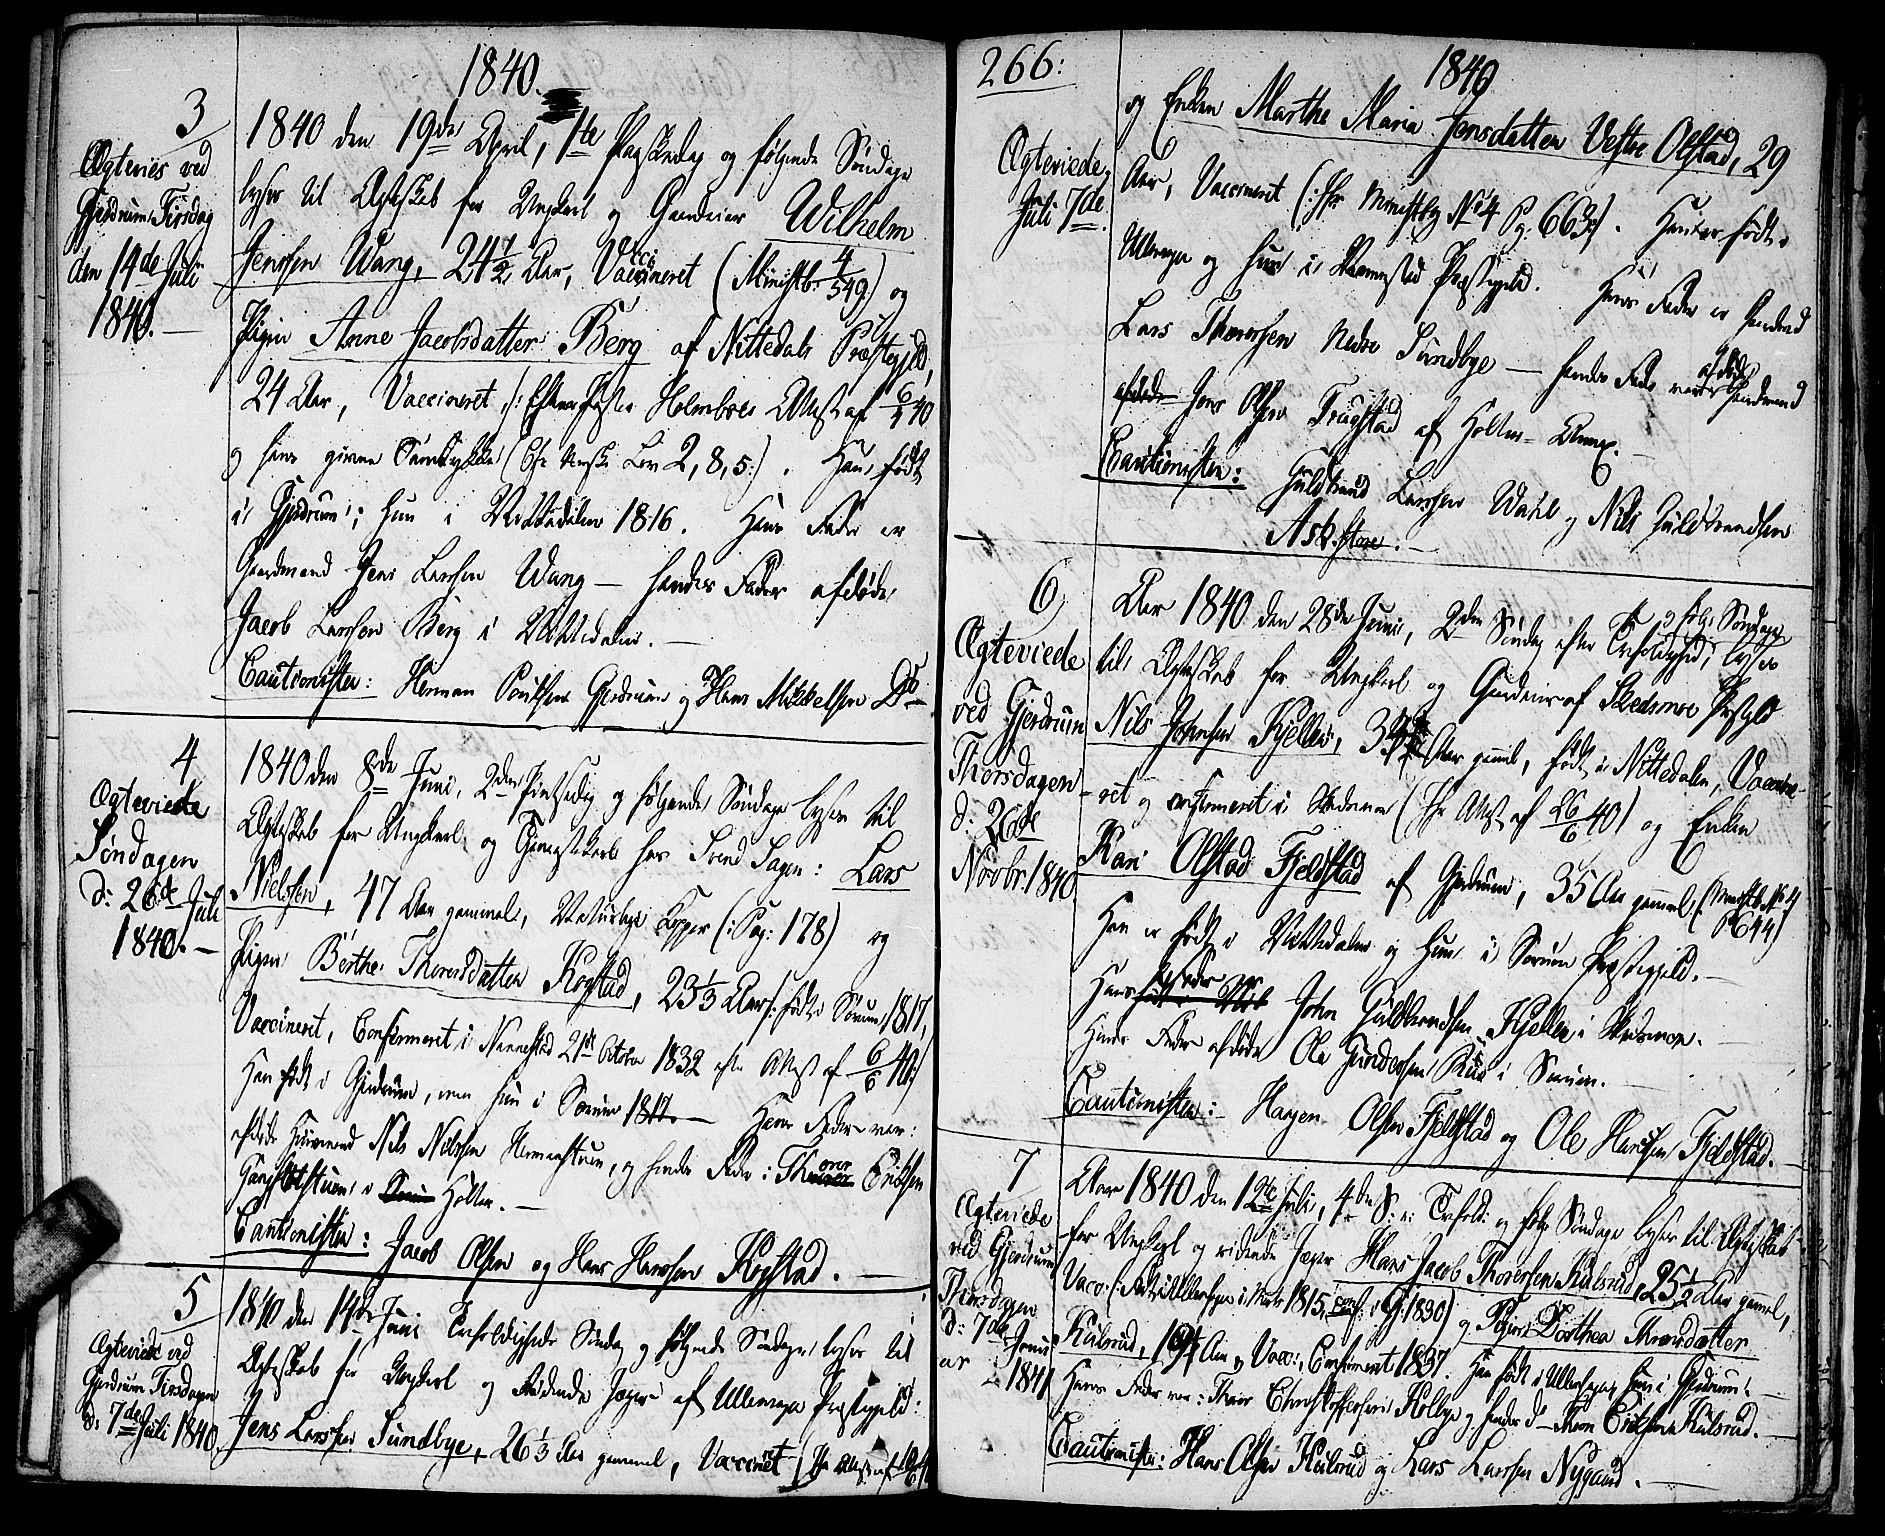 1840.
3
Ægtevies ved
Gjerdrum Tirsdag
den 14de Juli
1840. —
1840 den 19de April, 1te Paaskedag og følgende Søndage
lyses til Ægteskab for Ungkarl og Gaardeier Wilhelm
Jenssen Wang, 24 1/2 Aar, Vaccineret (Ministb: 4/549) og
Pigen Anne Jacobsdatter Berg af Nittedals Præstegjeld,
24 Aar, Vaccineret, Holmboes Attest af 6/4 40
og hans givne Samtykke (Cfr Norske Lov 2, 8, 5:). Han født
i Gjerdrum; hun i Nittedalen 1816. Hans Fader er
Gaardmand Jens Larssen Wang — hendes Fader afdøde
Jacob Larssen Berg i Nittedalen. —
Cautionister: Herman Poulsen Gjerdrum og Hans Mikkelsen Do —
4
Ægteviede
Søndagen
d: 26de Juli
1840. —
1840 den 8de Juni, 2den Pintsedag og følgende Søndage lyses til
Ægteskab for Ungkarl og Tjenestekarl hos Lars
Nielssen, 47 Aar gammel, Naturlige Kopper (: Pag: 178) og
Pigen Berthe Thoresdatter Kogstad, 23 1/3 Aar /: født i Sørum 1817,
Vaccineret, Confirmeret i Nannestad 21de October 1832 efter Attest af 6/6 40:/
Han født i Gjerdrum, men hun i Sørum 1817. — Hans Fader var:
afdøde Huusmand Nils Nielssen, og hendes Fader: Thorer Eriksen
i Holter. —
Cautionister: Jacob Olsen og Hans Hanssen Kogstad. —
5
Ægteviede ved
Gjerdrum Tirsdagen
d: 7de Juli 1840.
1840 den 14de Juni Trefoldigheds Søndag og følgende Søndage lyses til
Ægteskab for Ungkarl og Ridende Jæger af Ullensager Præstegjeld:
Jens Larssen Sundbye, 26 1/3 Aar gammel, Vaccineret
266:
1840
Ægteviede
Juli 7de.
og Enken Marthe Maria Jensdatter Vestre Olstad, 29
Aar, Vaccineret (: Cfr Ministb No 4 Pag: 663:). Han er født i
Ullensager og hun i Nannestad Præstegjeld. Hans Fader er Gaardmand
Lars Thorersen Nedre Sundbye — hendes Fader var afdøde Gaardmand
Jens Olsen Trugstad af Holter-Annex. —
Cautionister: Guldbrand Larssen Wahl og Nils Guldbrandsen
Ask. —
6
Ægteviede
ved Gjerdrum
Thorsdagen
d: 26de
Novbr: 1840.
Aar 1840 den 28de Juni, 2den Søndag efter Trefoldighed, og følg: Søndage lyses
til Ægteskab for Ungkarl og Gaardeier af Skedsmoe Præstegjeld
Nils Johnsen Kjeller, Aar gammel, født i Nittedalen, Vaccine-
ret og confirmeret i Skedsmoe (Cfr Attest af 26/6 40) og Enken
Kari Olstad Fjeldstad af Gjerdrum, 35 Aar gammel, (Ministb. No 4
P. 644)
Han er født i Nittedalen og hun i Sørum Præstegjeld. —
Hans Fader er John Guldbrandsen Kjeller i Skedsmoe. —
Hendes Fader afdøde Ole Gundersen Ruu i Sørum. —
Cautionister: Hagen Olsen Fjeldstad og Ole Hansen Fjeldstad. —
7
Ægteviede
ved Gjerdrum
Thorsdagen
d: 7de Janu-
ar 1841
Aar 1840 den 12te Juli, 4de S: e: Trefold: og følg: Søndage lyses til Ægteskab
for Ungkarl og ridende Jæger Hans Jacob Thorersen Kulsrud, 25 1/2 Aar gammel,
Vacc: (: født i Ullensager i Marts 1815, Conf: i Gj: 1830) og Pigen Dorthea Thoresdatter
Kulsrud, 19 Aar, Vacc:, Confirmeret 1837. Han født i Ullensager, hun i Gjerdrum. —
Hans Fader var: Thorer Christoffersen Holbye og hendes Do — Thore Eriksen Kulsrud. —
Cautionister: Hans Olsen Kulsrud og Lars Larssen Nygaard. —